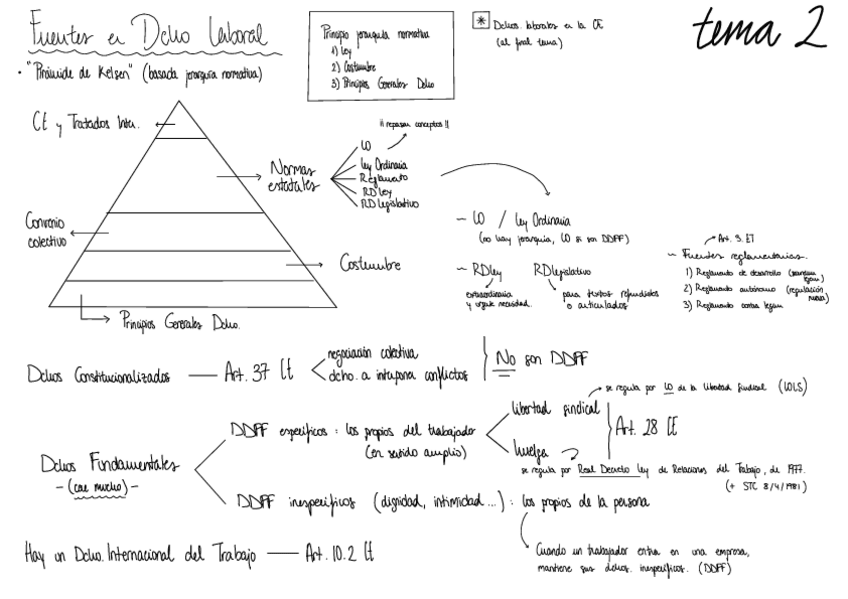 Fuentes en Dcho Laboral
Principio jerarquía normativa
1) Ley
2) Costumbre
3) Principios Generales Dcho
* Dchos laborales en la CE
(al final tema)
tema 2
· "Pirámide de Kelsen" (basada jerarquía normativa)
CE y Tratados Inter.
Normas
estatales
¡¡ repasar conceptos !!
LO
Ley Ordinaria
Reglamento
RD Ley
RD Legislativo
Convenio
colectivo
Costumbre
Principios Generales Dcho.
– LO / Ley Ordinaria
(no hay jerarquía, LO si son DDFF)
– RD Ley
extraordinaria
y urgente necesidad.
RD Legislativo
para textos refundidos
o articulados
Art. 3. ET
– Fuentes reglamentarias.
1) Reglamento de desarrollo
2) Reglamento autónomo (regulación
nueva)
3) Reglamento contra legem
Dchos Constitucionalizados — Art. 37 CE
negociación colectiva
dcho. a interponer conflictos
No son DDFF
Dchos Fundamentales
– (cae mucho) –
DDFF específicos : los propios del trabajador
(en sentido amplio)
libertad sindical
se regula por LO de la libertad sindical (LOLS)
huelga
Art. 28 CE
se regula por Real Decreto Ley de Relaciones del Trabajo, de 1977.
(+ STC 8/4/1981)
DDFF inespecíficos (dignidad, intimidad...) : los propios de la persona
Cuando un trabajador entra en una empresa,
mantiene sus dchos. inespecíficos. (DDFF)
Hay un Dcho. Internacional del Trabajo — Art. 10.2 CE